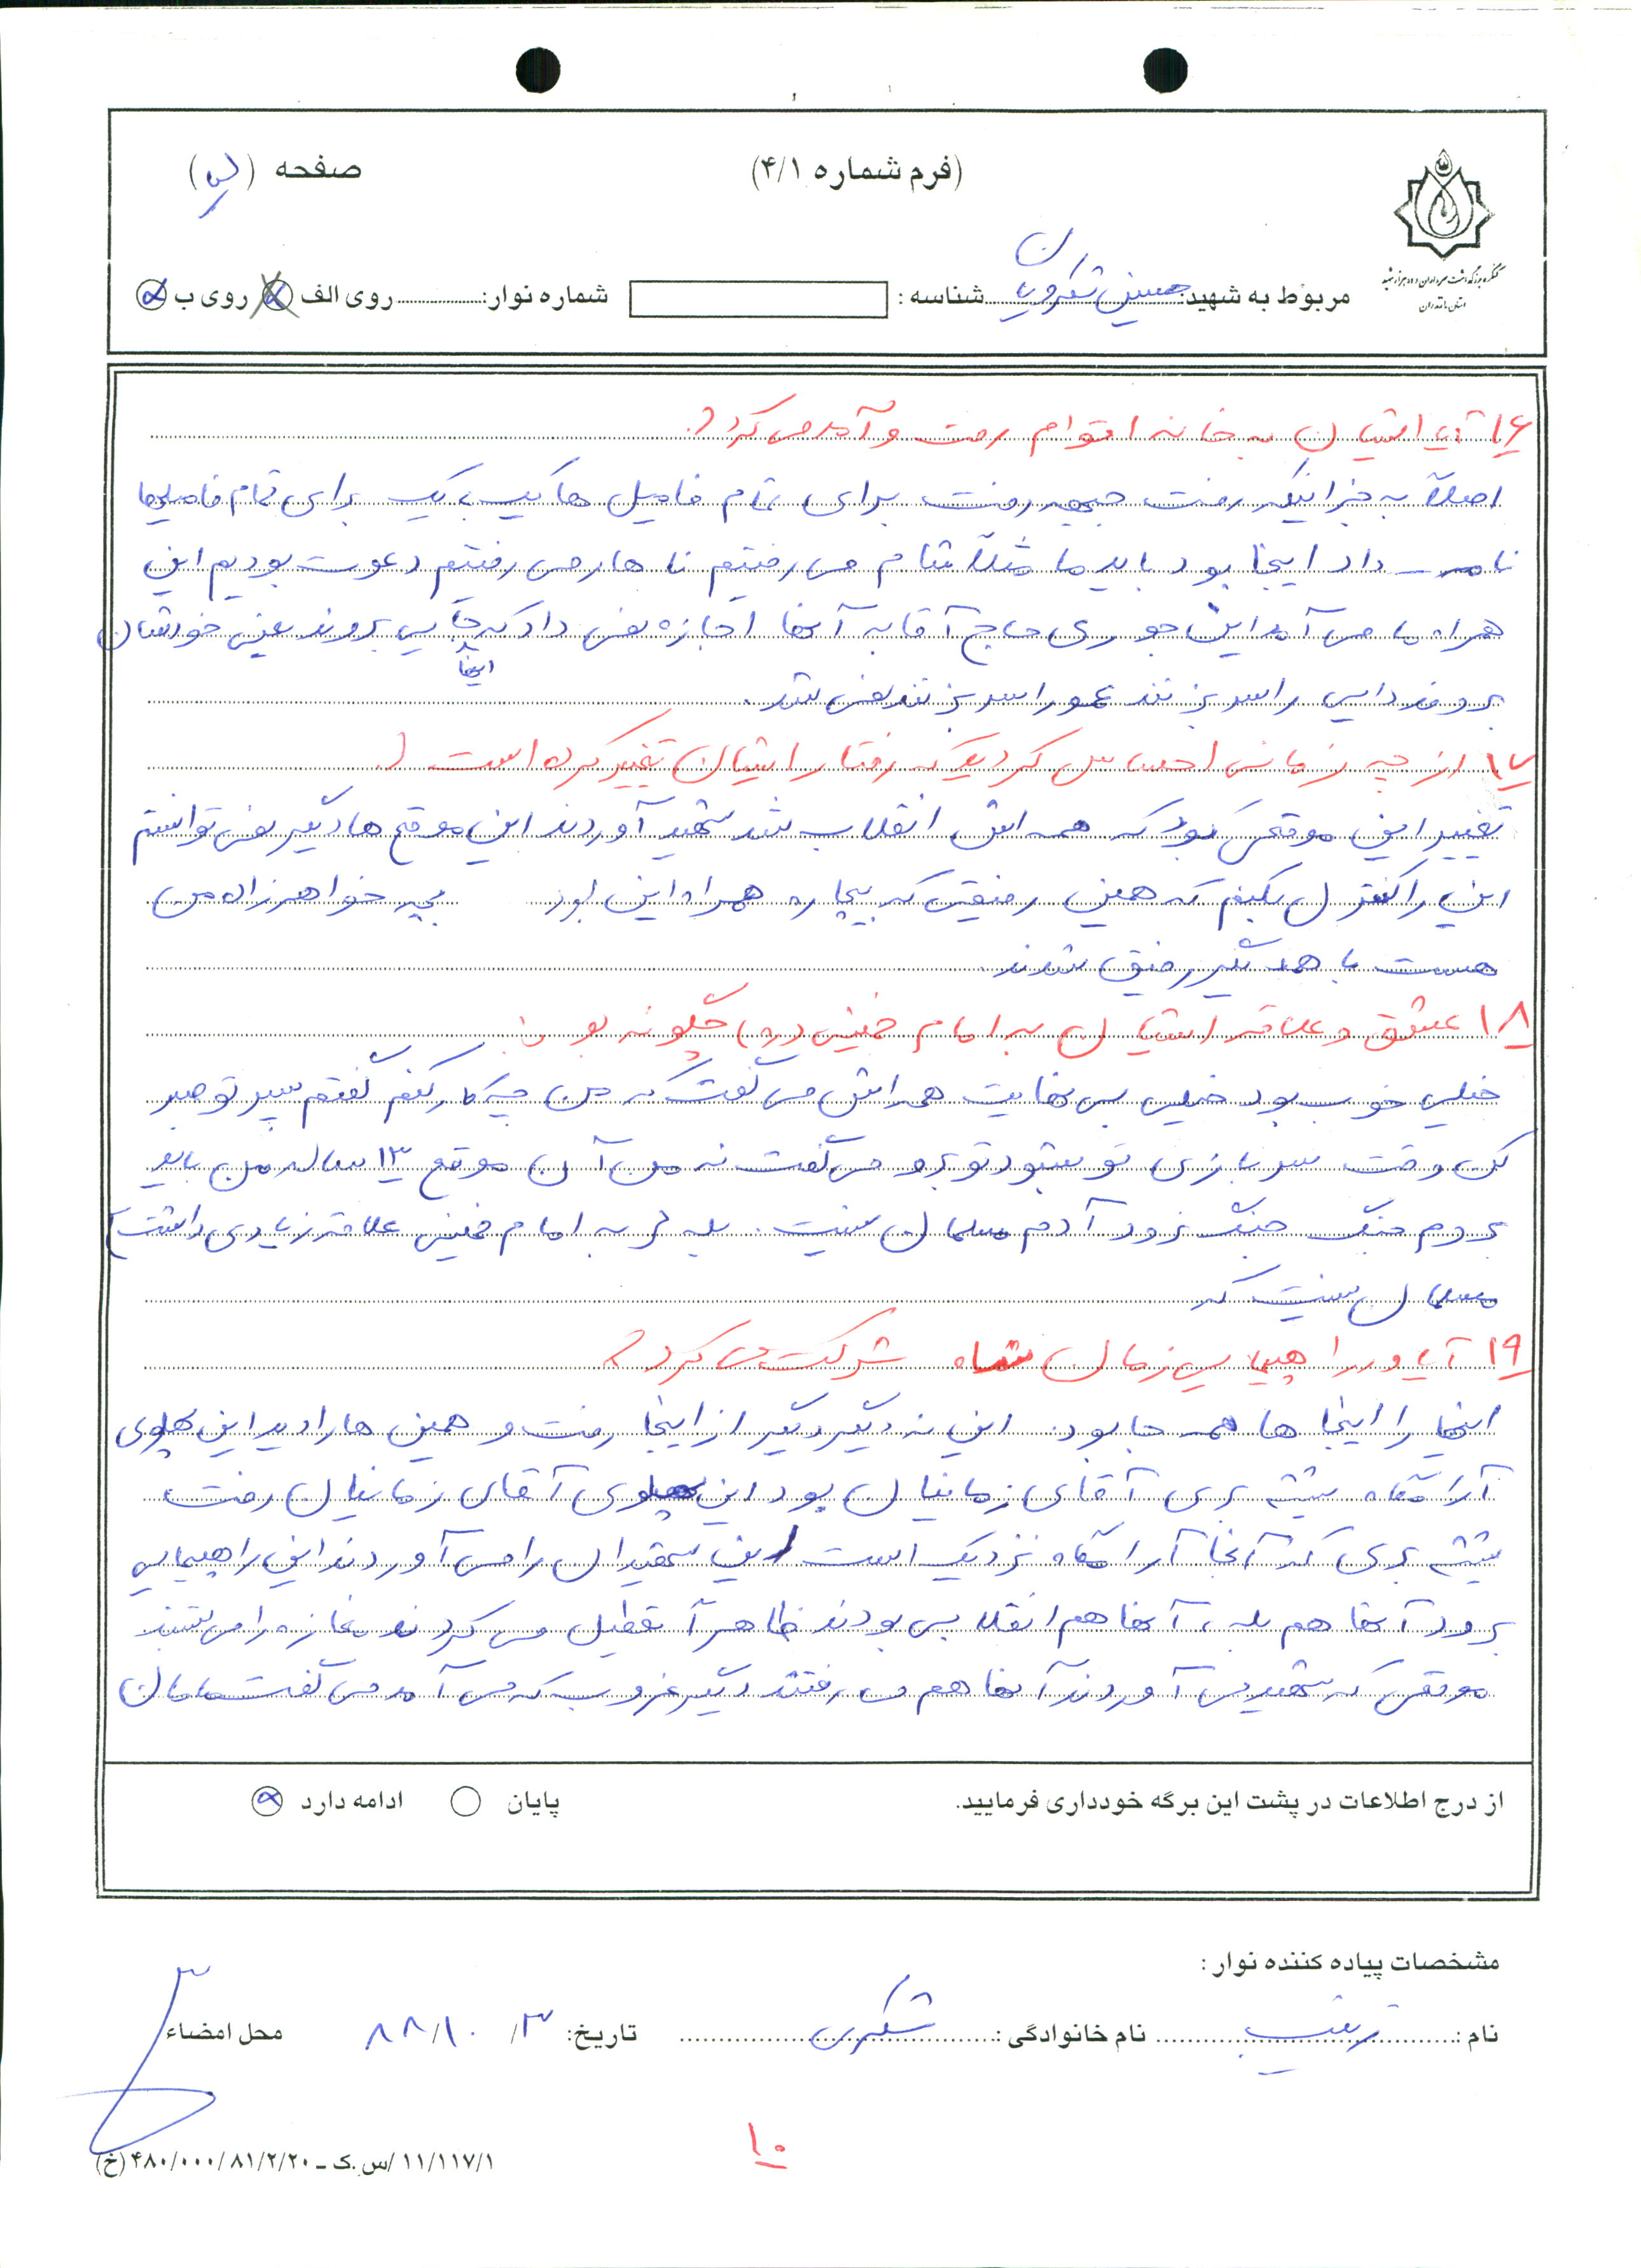 (فرم شماره ۴/۱)
صفحه ( )
کنگره بزرگداشت سرداران و ده هزار شهید
استان مازندران
مربوط به شهید: حسین شناسه : شماره نوار: روی الف روی ب
۱۶ آیا ایشان به خانه اقوام رفت و آمد می کرد؟
اصلاً به جز اینکه رفت جبهه رفت برای تمام فامیل ها یک به یک برای تمام فامیلها
نامه داد اینجا بود باید ما مثلاً شام می رفتیم ناهار می رفتیم دعوت بودیم این
همراه ما می آمد این جوری حاج آقا به آنها اجازه نمی داد که جایی بروند یعنی خودشان
اینجا
برود دایی را سر بزنند عمو را سر بزنند نمی شد.
۱۷ از چه زمانی احساس کردید که رفتار ایشان تغییر کرده است؟
تغییر این موقعی بود که همه اش انقلاب شد شهید آوردند این موقع ها دیگر نمی توانستم
این را کنترل بکنیم که همین رفیقی که بیچاره همراه این بود بچه خواهرزاده من
هست با همدیگر رفیق شدند.
۱۸ عشق و علاقه ایشان به امام خمینی (ره) چگونه بود؟
خیلی خوب بود خیلی بی نهایت همه اش می گفت که من چیکار کنم گفتم پسر تو صبر
کن وقت سربازی تو بشود تو برو می گفت نه من آن موقع ۱۳ ساله من باید
بروم جنگ جنگ نرود آدم مسلمان نیست. بله به امام خمینی علاقه زیادی داشت
مسلمان نیست که
۱۹ آیا در راهپیمایی زمان شاه شرکت می کرد؟
اینها را اینجا ها همه جا بود. این نه دیگر دیگر از اینجا رفت و همین ها را دید این پهلوی
آرامگاه بیشه بری آقای زمانیان بود این پهلوی آقای زمانیان رفت
بیشه بری که آنجا آرامگاه نزدیک است این شهیدان را می آوردند این راهپیمایی
برود آنها هم بله، آنها هم انقلابی بودند ظاهراً تعطیل می کردند مغازه را می بستند
موقعی که شهید می آوردند آنها هم می رفتند دیگر غروب که می آمد می گفت مامان
از درج اطلاعات در پشت این برگه خودداری فرمایید. پایان ادامه دارد
مشخصات پیاده کننده نوار :
نام : زینب نام خانوادگی : شکری تاریخ: ۸۸/۱۰/۳ محل امضاء
۱۰
۱۱/۱۱۷/۱ /س.ک ـ ۴۸۰/۰۰۰/۸۱/۲/۲۰ (خ)